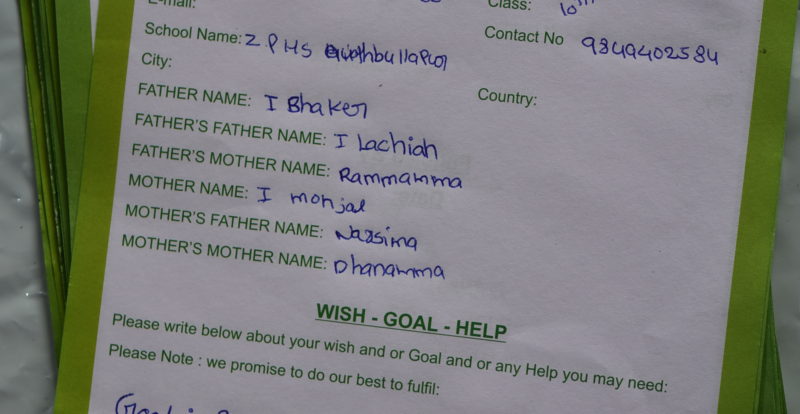 E-mail:
Class: 10th
School Name: Z P H S Quthbullapur
Contact No 9849402584
City:
Country:
FATHER NAME: I Bhaker
FATHER'S FATHER NAME: I Lachiah
FATHER'S MOTHER NAME: Rammamma
MOTHER NAME: I monjal
MOTHER'S FATHER NAME: Narsima
MOTHER'S MOTHER NAME: Dhanamma
WISH - GOAL - HELP
Please write below about your wish and or Goal and or any Help you may need:
Please Note : we promise to do our best to fulfil: